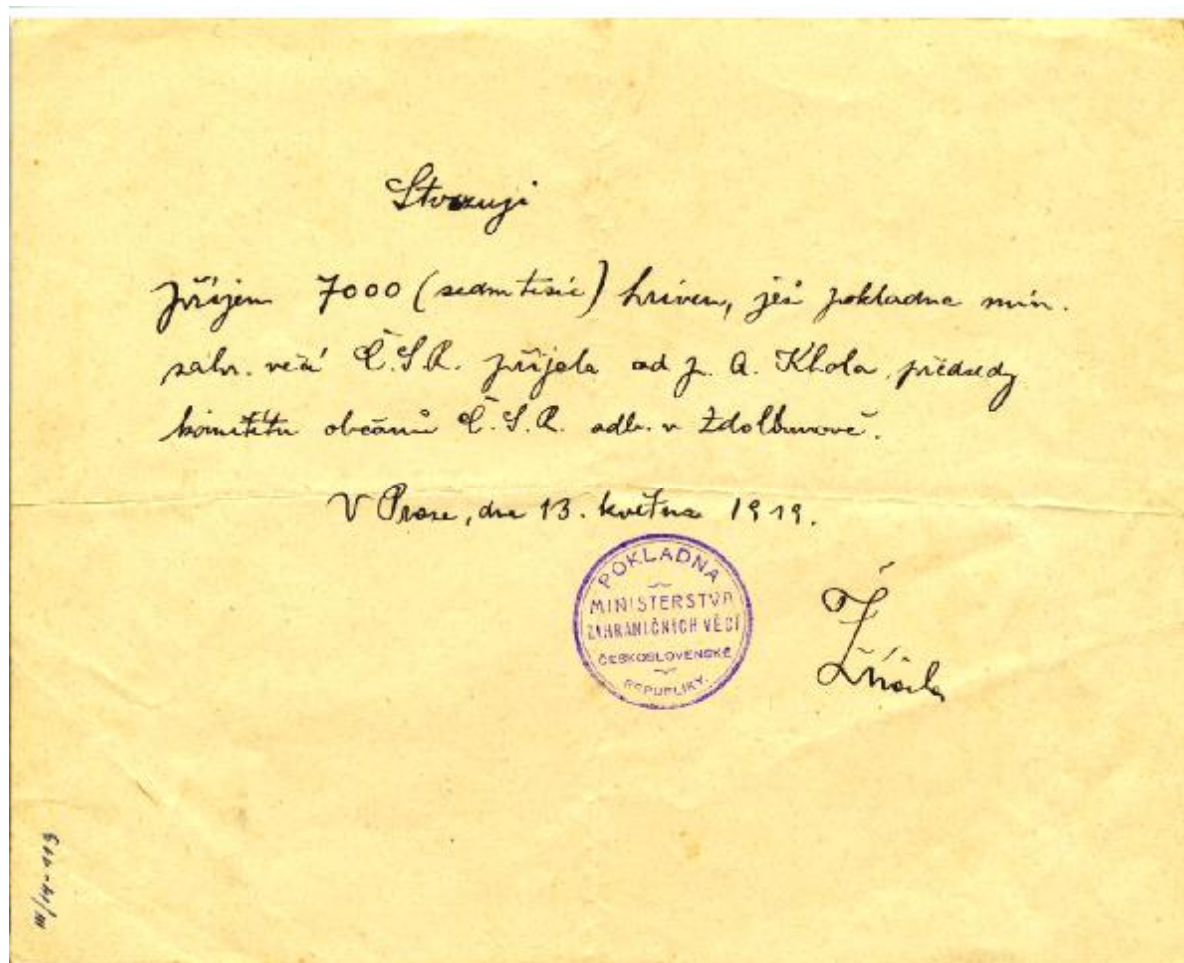 Stvrzuji
příjem 7000 (sedm tisíc) hřiven, jež pokladna min.
zahr. věcí Č.S.R. přijala od p. A. Khola, předsedy
komitétu občanů Č.S.R. odb. v Zdolbunově.
V Praze, dne 13. května 1919.
POKLADNA
MINISTERSTVA
ZAHRANIČNÍCH VĚCÍ
ČESKOSLOVENSKÉ
REPUBLIKY.